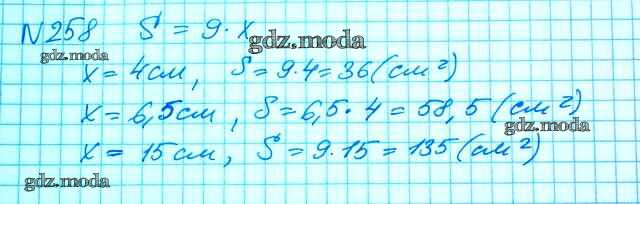 N258 S = 9·x
gdz.moda
x = 4см, S = 9·4 = 36 (см²)
gdz.moda
x = 6,5см, S = 6,5·4 = 58,5 (см²)
gdz.moda
x = 15см, S = 9·15 = 135 (см²)
gdz.moda